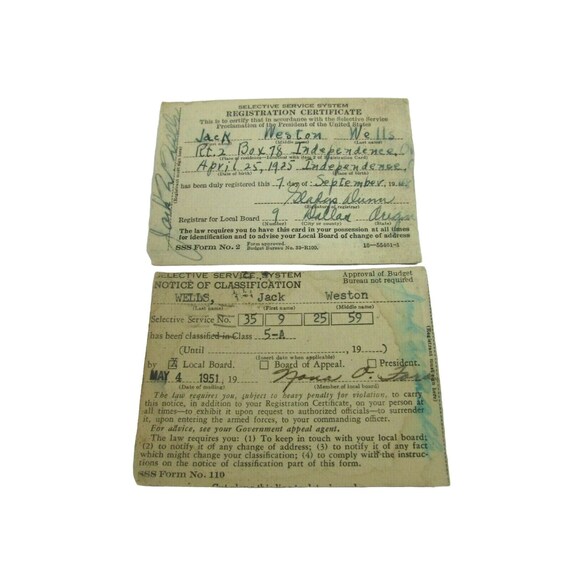 SELECTIVE SERVICE SYSTEM
REGISTRATION CERTIFICATE
This is to certify that in accordance with the Selective Service
Proclamation of the President of the United States
Jack Weston Wells
(Middle name) (Last name)
Rt. 2 Box 78 Independence,
(Place of residence
April 25, 1925 Independence,
(Date of birth) (Place of birth)
has been duly registered this 7 day of September, 19
Gladys Dunn
(Signature of registrar)
Registrar for Local Board 9 Dallas Oregon
(Number) (City or county) (State)
The law requires you to have this card in your possession at all times
for identification and to advise your Local Board of change of address
SSS Form No. 2 Form approved. Budget Bureau No.
SELECTIVE SERVICE SYSTEM
NOTICE OF CLASSIFICATION
Approval of Budget
Bureau not required
WELLS, Jack Weston
(Last name) (First name) (Middle name)
Selective Service No. 35 9 25 59
has been classified in Class 5-A
(Until , 19 )
(Insert date when applicable)
by X Local Board. Board of Appeal. President.
MAY 4 1951, 19
(Date of mailing) (Member of local board)
The law requires you, subject to heavy penalty for violation, to carry
this notice, in addition to your Registration Certificate, on your person at
all times—to exhibit it upon request to authorized officials—to surrender
it, upon entering the armed forces, to your commanding officer.
For advice, see your Government appeal agent.
The law requires you: (1) To keep in touch with your local board;
(2) to notify it of any change of address; (3) to notify it of any fact
which might change your classification; (4) to comply with the instruc-
tions on the notice of classification part of this form.
SSS Form No. 110